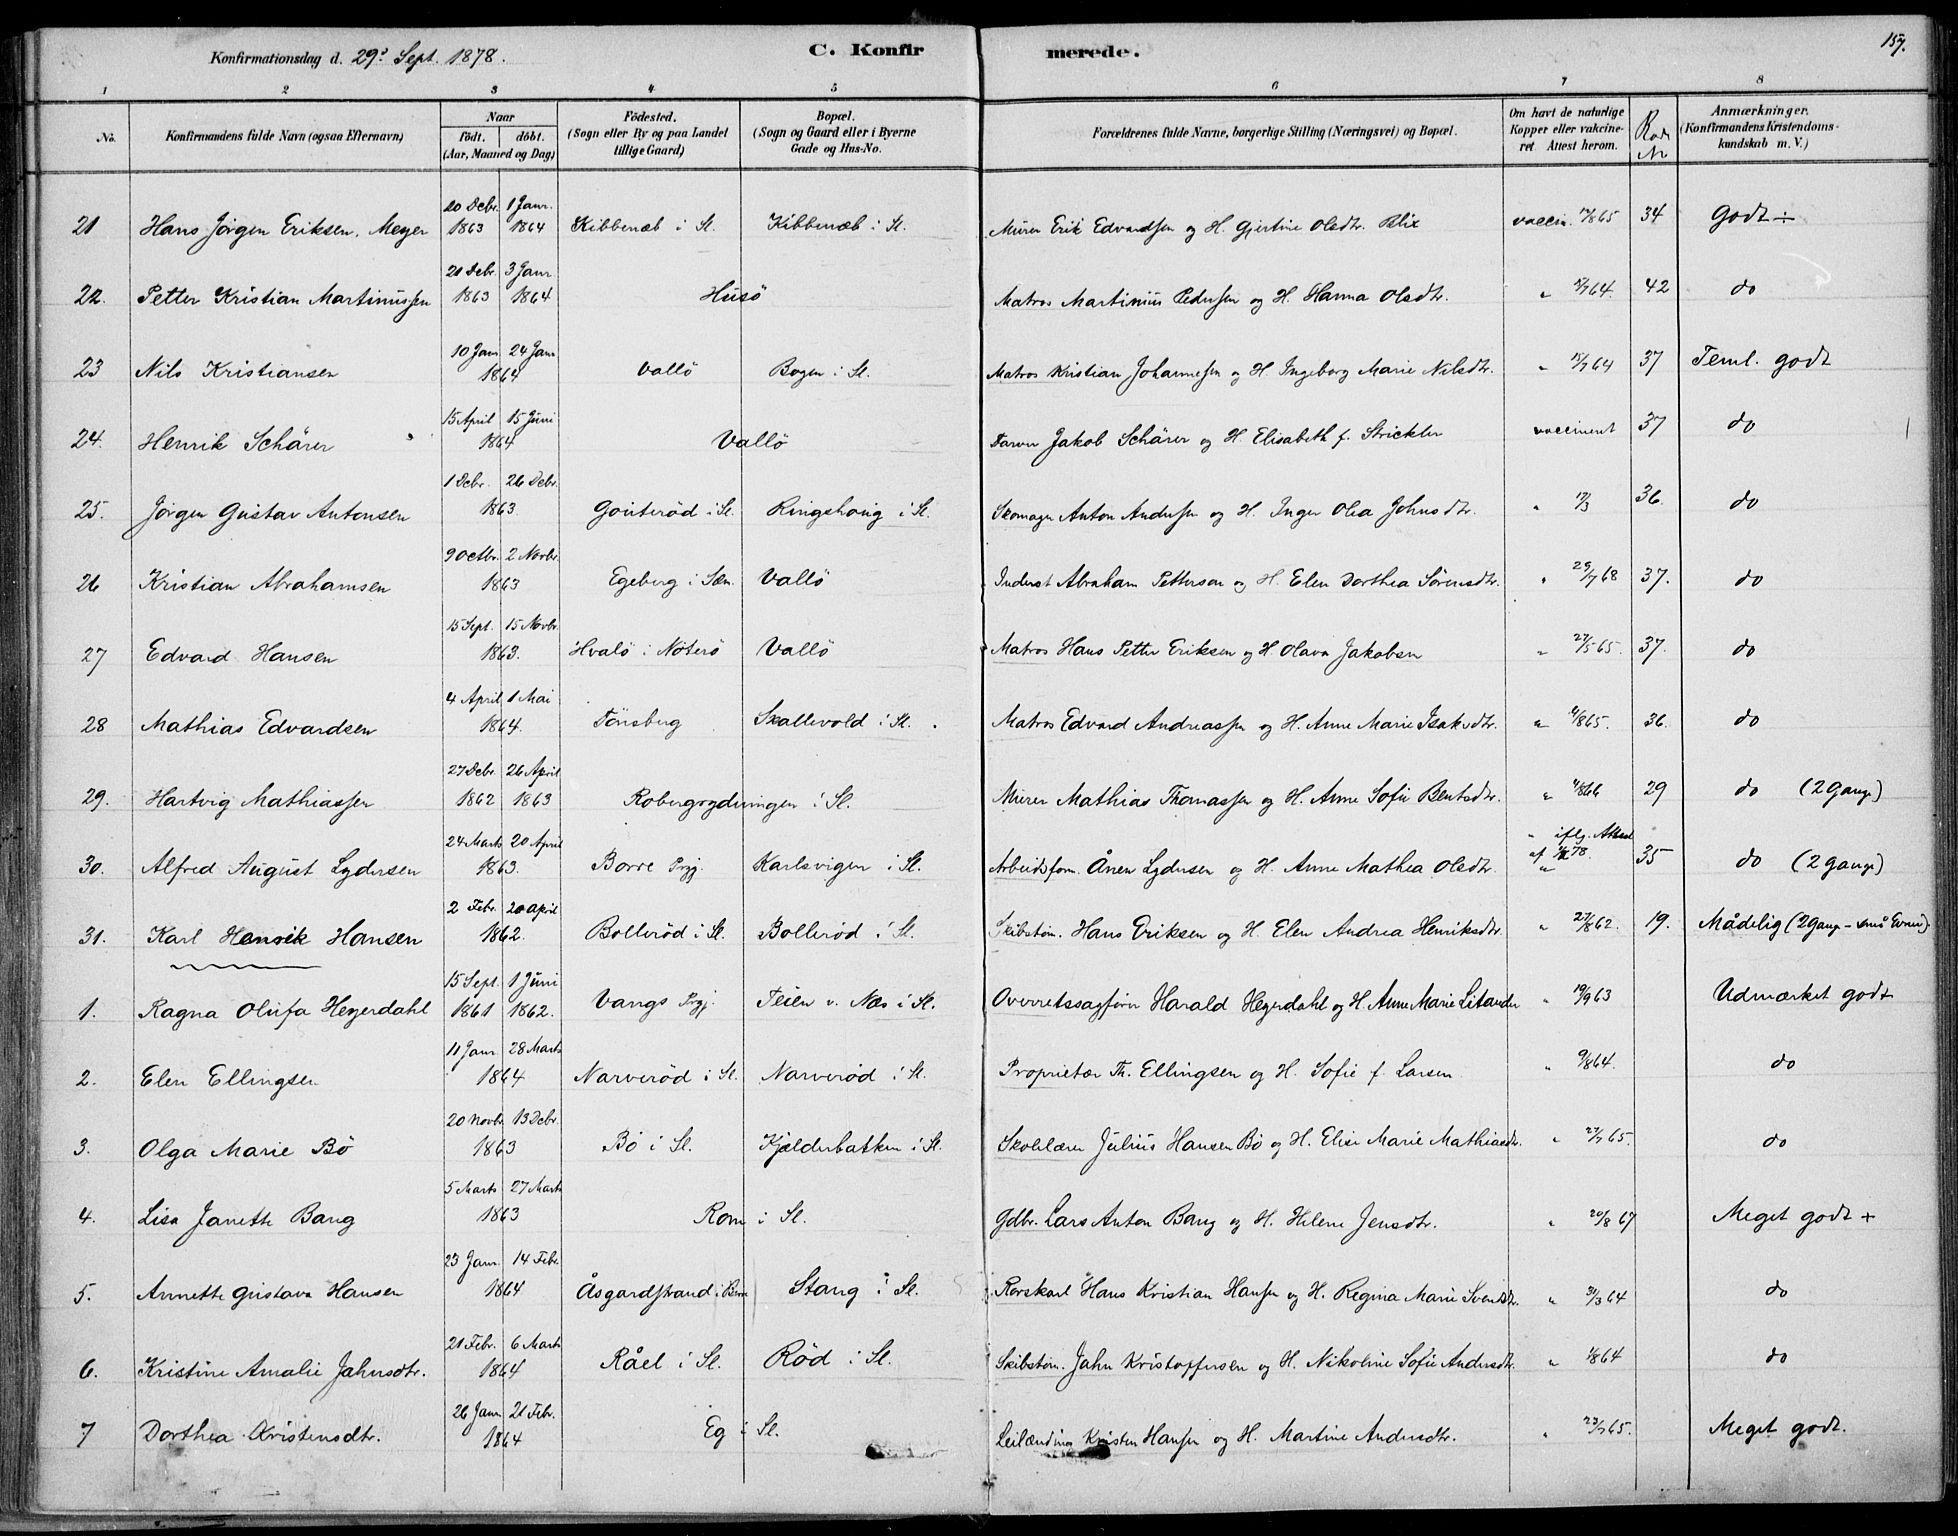 Konfirmationsdag d. 29de Sept. 1878. C. Konfirmerede. 157.
1 2 3 4 5 6 7 8
No. Konfirmandens fulde Navn (ogsaa Efternavn) Naar født. døbt. (Aar, Maaned og Dag) Fødested. (Sogn eller By og paa Landet tillige Gaard) Bopæl. (Sogn og Gaard eller i Byerne Gade og Hus-No. Forældrenes fulde Navne, borgerlige Stilling (Næringsvei) og Bopæl. Om havt de naturlige Kopper eller vakcineret Attest herom. Rode Nr Anmærkninger. (Konfirmandens Kristendomskundskab m. V.)
21 Hans Jørgen Eriksen, Meyer 20 Debr. 1863 1 Janr. 1864 Kibbenæb i Sl. Kibbenæb i Sl. Murer Erik Edvardsen og H. Gjertine Olsdtr. Blix vaccin. 34 Godt ÷
22. Petter Kristian Martinussen 21 Debr. 1863 3 Janr 1864 Husø Matros Martinius Pedersen og H. Hanna Olsdtr. " 42 do
23 Nils Kristiansen 10 Janr 24 Janr 1864 Vallø Bogen i Sl. Matros Kristian Johannesen og H. Ingeborg Marie Nilsdtr. " 15/7 64 37 Teml. godt
24. Henrik Schärer 15 April 15 Juni 1864 Vallø Farver Jakob Schärer og H. Elisabeth f. Strickler vaccineret 37 do
25. Jørgen Gustav Antonsen 1 Debr. 26 Debr. 1863 Gouterød i Sl. Ringshoug i Sl. Skomager Anton Andersen og H. Inger Olea Johnsdtr. " 36. do
26 Kristian Abrahamsen 9 Octbr. 2 Novbr. 1863 Egeberg i Sæm Vallø Inderst Abraham Petterson og H. Elen Dorthea Sørensdtr. " 29/7 68 37. do
27 Edvard Hansen 15 Sept. 15 Novbr. 1863. Hvalø i Nøterø Vallø Matros Hans Petter Eriksen og H. Olava Jakobsen " 27/5 65. 37. do
28 Mathias Edvardsen 4 April 1 Mai 1864. Tønsberg Skallevold i Sl. Matros Edvard Andreassen og H. Anne Marie Isaksdtr. " 36. do
29. Hartvig Mathiassen 27 Debr. 1862 26 April 1863 Robergrydningen i Sl. Murer Mathias Thomassen og H. Anne Sofie Bentsdtr. " 4/8 66 29 do (2 Gange)
30. Alfred August Lydersen 24 Marts 20 April 1863. Borre Prgj. Karlsvigen i Sl. Arbeidsform. Ånen Lydersen og H. Anne Mathea Olsdtr. " iflg. Attest af 35 do (2 gange)
31. Karl Henrik Hansen 2 Febr. 20 april 1862. Bollerød i Sl. Bollerød i Sl. Skibstøm. Hans Eriksen og H. Elen Andrea Henriksdtr. " 27/8 62. 19. Mådelig (2 Gange - små Evner)
1. Ragna Olufa Heyerdahl 15 Sept. 1861 1 Juni 1862. Vangs Prgj. Teien v. Næs i Sl. Overretssagfører Harald Heyerdahl og H. Anne Marie Litander " 19/9 63 Udmærket godt
2. Elen Ellingsen 11 Janr. 28 Marts 1864 Narverød i Sl. Narverød i Sl. Proprietær Th. Ellingsen og H. Sofie f. Larsen " 9/8 64. do
3. Olga Marie Bø 20 Novbr. 13 Debr. 1863 Bø i Sl. Kjælderbakken i Sl. Skolelærer Julius Hansen Bø og H. Elise Marie Mathiasdtr. " 27/7 65. do
4. Lisa Janette Bang 5 Marts 27 Marts 1863 Rom i Sl. Gdbr. Lars Anton Bang og H. Helene Jensdtr. " 20/8 67 Meget godt +
5. Annette Gustava Hansen 23 Janr. 14 Febr. 1864 Åsgardstrand i Borre Stang i Sl. Rorskarl Hans Kristian Hansen og H. Regina Marie Svendsdtr. " 31/3 64 do
6. Kristine Amalie Jahnsdtr. 21 Febr. 6 Marts 1864 Råel i Sl. Rød i Sl. Skibstøm. Jahn Kristoffersen og H. Nikoline Sofie Andersdtr. " 1/8 64 do
7 Dorthea Kristensdtr. 26 Janr 21 Febr. 1864 Eg i Sl. Leilænding Kristen Hansen og H. Martine Andersdtr. " 23/7 65. Meget godt.